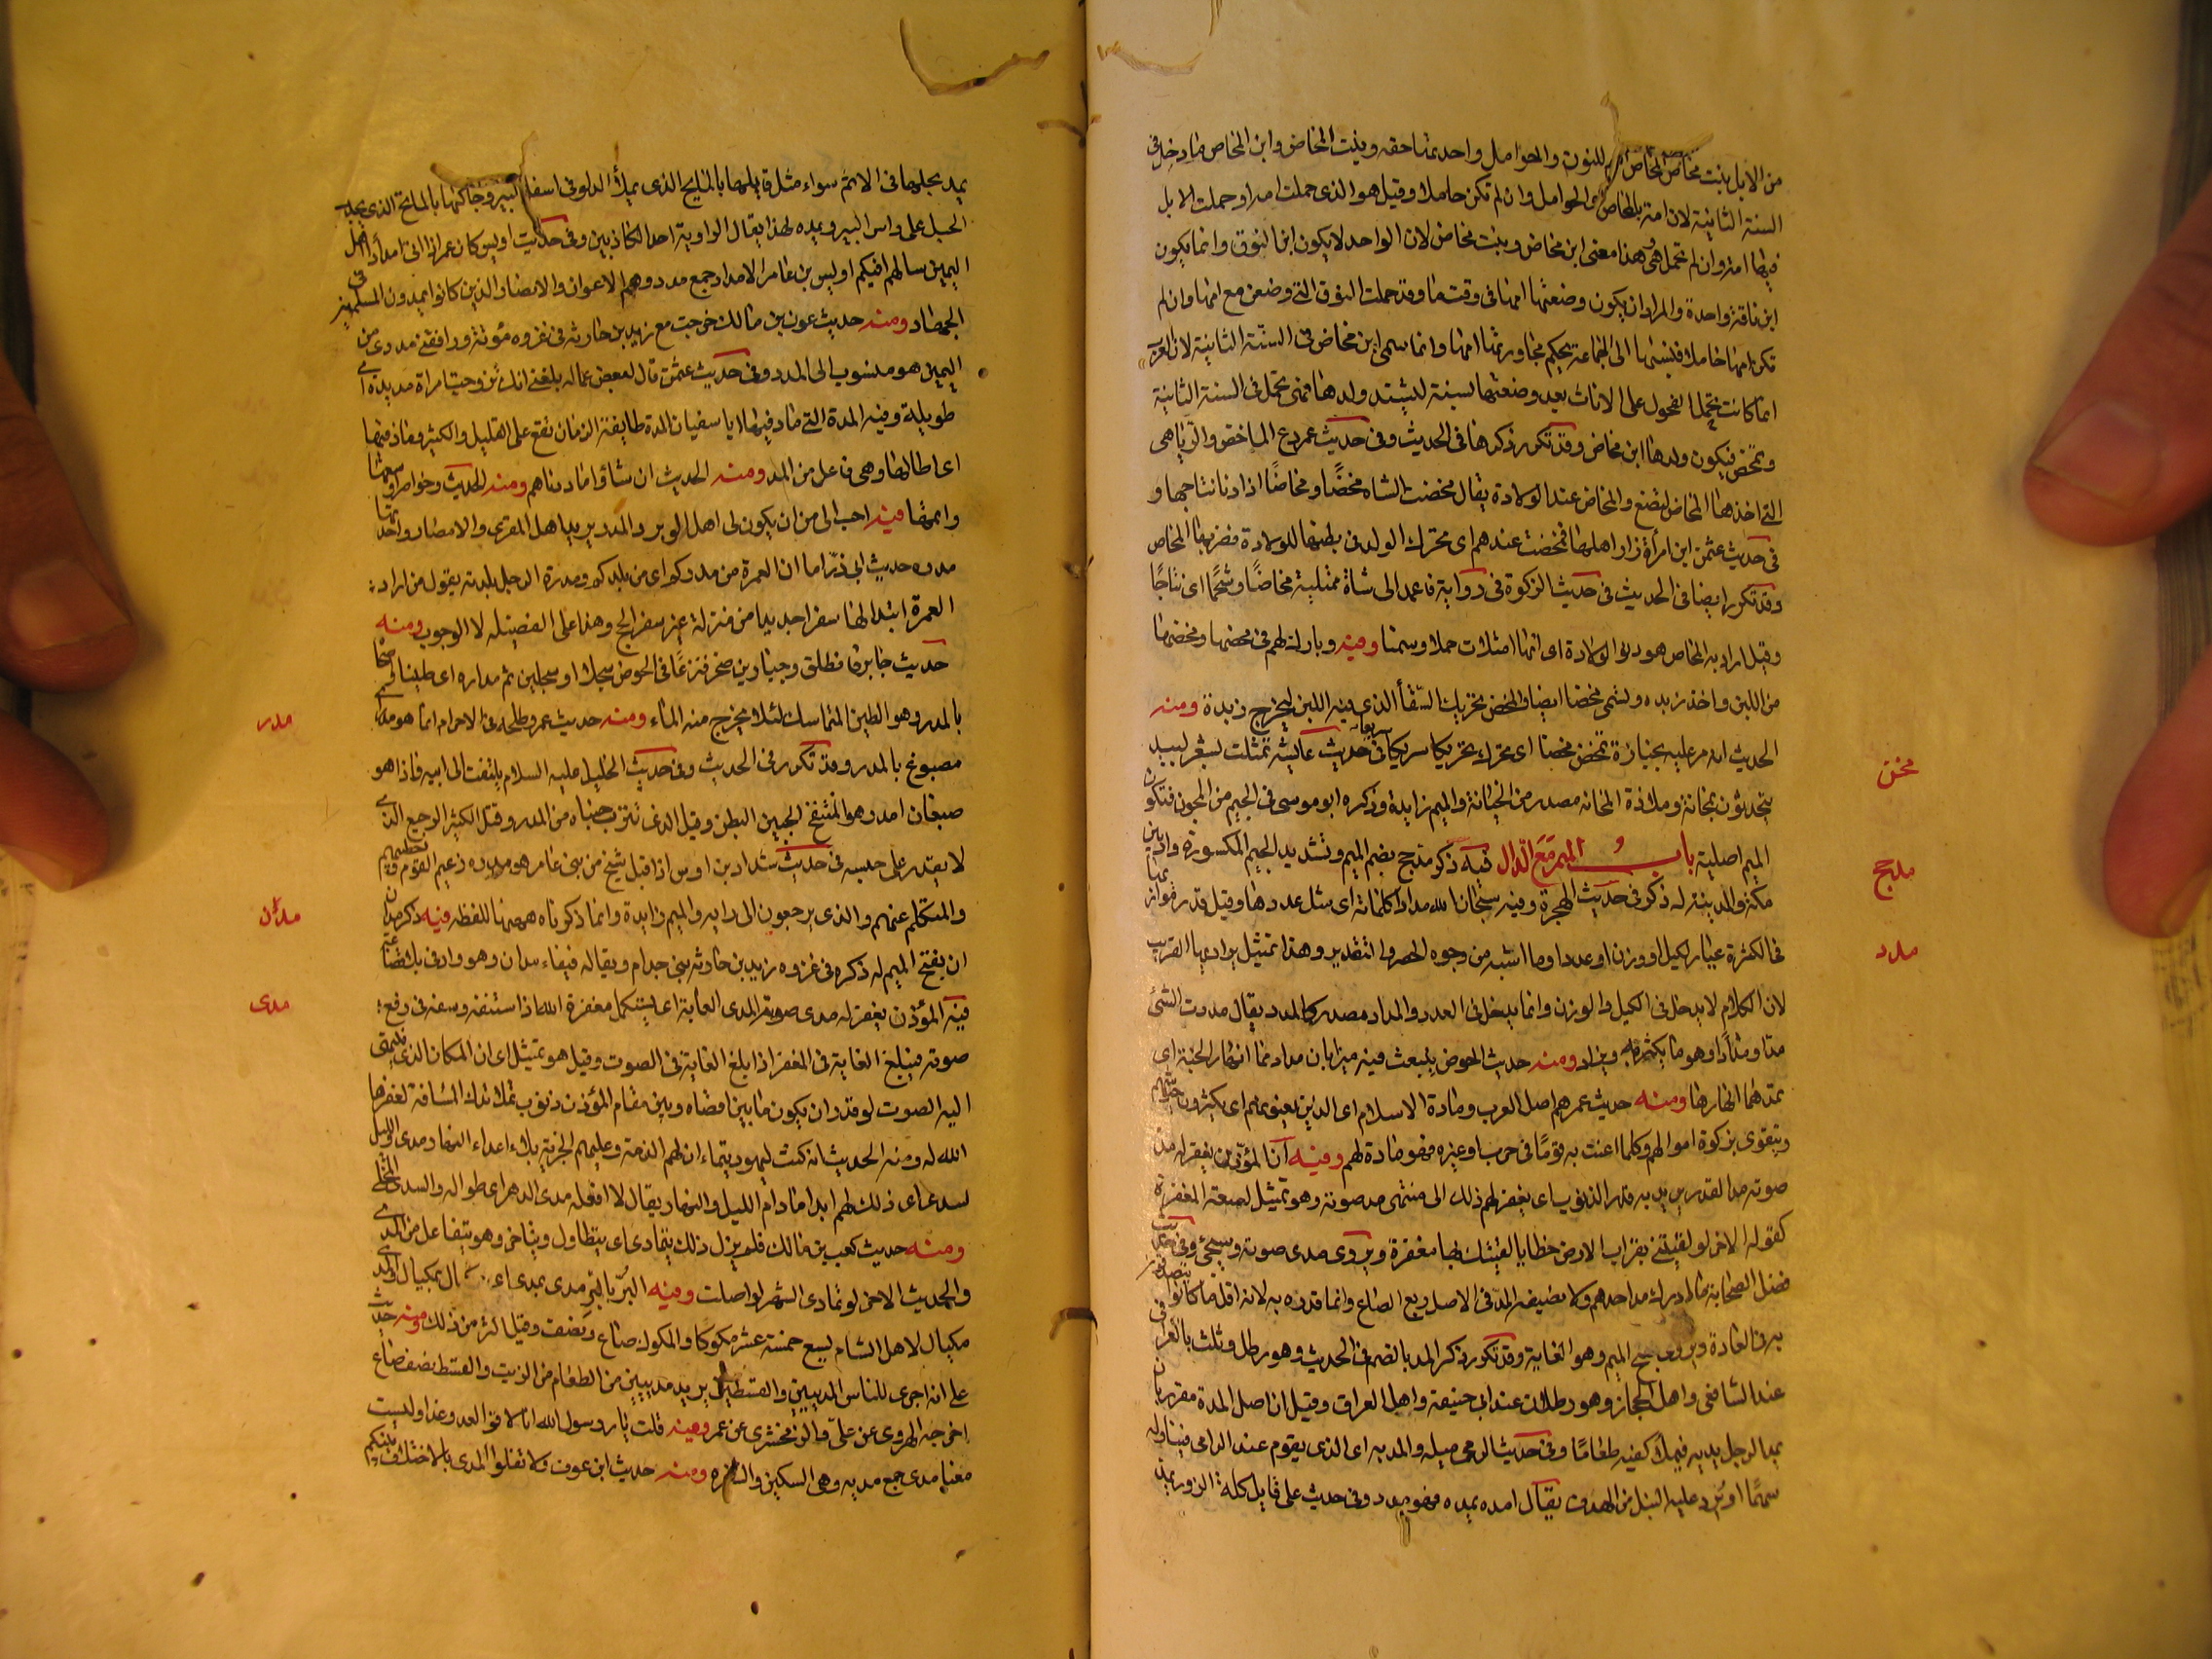 من الابل بنت مخاض المخاض اسم للنوق والحوامل واحدتها خلفة وبنت المخاض وابن المخاض ما دخل فى
السنة الثانية لان امه بالمخاض اى الحوامل وان لم تكن حاملا وقيل هو الذى حملت امه او حملت الابل
فيها امه وان لم تحمل هى وهذا معنى ابن مخاض وبنت مخاض لان الواحد لا يكون ابن النوق وانما يكون
ابن ناقة واحدة والمراد ان يكون وضعتها امها فى وقت ما وقد حملت النوق التى وضعن مع امها وان لم
تكن امها حاملا فنسبها الى الجماعة بحكم مجاورتها امها وانما سمى ابن مخاض فى السنة الثانية لان العرب
انما كانت تحمل الفحول على الاناث بعد وضعها بسنة ليشتد ولدها فهى تحمل فى السنة الثانية
وتمخض فيكون ولدها ابن مخاض وقد تكرر ذكرها فى الحديث وفى حديث عمر دع الماخض والربا هى
التى اخذها المخاض لتضع والمخاض عند الولادة يقال مخضت الشاه مخضا ومخاضا اذا دنا نتاجها و
فى حديث عثمن ان امرأة زارا اهلها فمخضت عندهم اى تحرك الولد فى بطنها للولادة فضربها المخاض
وقد تكرر ايضا فى الحديث فى حديث الزكوة فى رواية فاعمد الى شاة ممتلية مخاضا وشحما اى نتاجا
وقيل اراد به المخاض هو دنو الولادة اى انها امتلات حملا وسمنا وفيه وبارك لهم فى محضها ومخضها ما
من اللبن واخذ زبده ويسمى مخضا ايضا والمخض تحريك السقأ الذى فيه اللبن ليخرج زبدة ومنه
الحديث انه مر عليه بجنازة تمخض مخضا اى تحرك تحريكا سريعا فى حديث عايشه تمثلت بشعر لبيد
مخن
يتحدثون مخانة وملاذة المخانه مصدر من الخيانة والميم زايدة وذكره ابو موسى فى الجيم من المجون فتكون
الميم اصلية باب الميم مع الدال فيه ذكر مدجج بضم الميم وتشديد الجيم المكسورة واد بين
مدجج
مكة والمدينة له ذكر فى حديث الهجرة وفيه سبحان الله مداد كلماته اى مثل عددها وقيل قدر ما يوازنها
مدد
فى الكثرة عيار كيل او وزن او عدد او ما اشبه من وجوه الحصر والتقدير وهذا تمثيل يراد بها التقريب
لان الكلام لا يدخل فى الكيل والوزن وانما يدخل فى العدد والمداد مصدر كالمدد يقال مددت الشئ
مدا ومدادا وهو ما يكثر به ويزاد ومنه حديث الحوض ينبعث فيه ميزابان مدادهما انهار الجنة اى
تمدهما انهارها ومنه حديث عمر هم اصل العرب ومادة الاسلام اى الذين يعينونهم اى يكثرون جيوشهم
ويتقوى بزكوة اموالهم وكلما اعنت به قوما فى حرب او غيره فهو مادة لهم وفيه ان المؤذن يغفر له مد
صوته مد القدر يريد به قدر الذنوب اى يغفر لهم ذلك الى منتهى مد صوته وهو تمثيل لسعة المغفرة
كقوله الاخر لو لقيتنى بقراب الارض خطايا لقيتك بها مغفرة ويروى مدى صوته وسيجئ وفى حديث
فضل الصحابة ما ادرك مد احدهم ولا نصيفه المد فى الاصل ربع الصاع وانما قدره به لانه اقل ما كانوا يتصدقون
به فى العادة ويروى بفتح الميم وهو الغاية وقد تكرر ذكر المد بالضم فى الحديث وهو رطل وثلث بالعراقى
عند الشافعى واهل الحجاز وهو رطلان عند ابى حنيفة واهل العراق وقيل ان اصل المدة مقدر بان
يمد الرجل يديه فيملأ كفيه طعاما وفى حديث الرمى منبله والمد به اى الذى يقوم عند الرامى فيناوله
سهما او يرد عليه النبل من الهدف يقال امده يمده فهو ممد وفى حديث على قايل كلمة الزور يمد
يمد بحبلها فى الاثم سواء مثل قايلها بالمايح الذى يملأ الدلو فى اسفل البير وحاكيها بالماتح الذى يجذب
الحبل على راس البير ويمده لهذا يقال الراوية احد الكاذبين وفى حديث اويس كان عمر اذا اتى امداد اهل
اليمن سالهم افيكم اويس بن عامر الامداد جمع مدد وهم الاعوان والانصار الذين كانوا يمدون المسلمين فى
الجهاد ومنه حديث عوف بن مالك خرجت مع زيد بن حارثه فى غزوه مؤته ورافقنى مددى من
اليمن هو منسوب الى المدد وفى حديث عثمن قال لبعض عماله بلغنى انك تزوجت امراة مديدة اى
طويلة وفيه المدة التى ماد فيها ابا سفيان المدة طايفة من الزمان تقع على القليل والكثير وماد فيها
اى اطالها وهى فاعل من المد ومنه الحديث ان شاؤا ماددناهم ومنه الحديث وخواصر اوسعها
وامدها فيه احب الى من ان يكون لى اهل الوبر والمدر يريد اهل القرى والامصار واحدتها
مدره حديث ابى ذر اما ان العمرة من مدركم اى من بلدكم ومدرة الرجل بلدته يقول من اراد
العمرة ابتدا لها سفرا جديدا من منزله غير سفر الحج وهذا على الفضيله لا الوجوب ومنه
حديث جابر فانطلق وجبار بن صخر فنزعا فى الحوض سجلا او سجلين ثم مداره اى طيناه
مدر
بالمدر وهو الطين المتماسك لئلا يخرج منه الماء ومنه حديث عمر وطلحه فى الاحرام انما هو مدر
مصبوغ بالمدر وقد تكرر فى الحديث وفى حديث الخليل عليه السلام يلتفت الى ابيه فاذا هو
ضبعان امدر هو المنتفخ الجبين البطن وقيل الذى تترب جنباه من المدر وقيل الكثير الرجيع الذى
لا يقدر على حبسه فى حديث شداد بن اوس اذ اقبل شيخ من بنى عامر هو مدره زعيم القوم وخطيبهم
والمتكلم عنهم والذى يرجعون الى رايه والميم زايدة وانما ذكرناه ههنا للفظه فيه ذكر مدان
مدان
ان بفتح الميم له ذكر فى غزوه زيد بن حارثه بنى جذام ويقال له فيفاء مدان وهو واد فى بلاد قضاعة
فيه المؤذن يغفر له مدى صوته المدى الغاية اى يستكمل مغفرة الله اذا استنفد وسعه فى رفع
مدى
صوته فيبلغ الغاية فى المغفرة اذا بلغ الغاية فى الصوت وقيل هو تمثيل اى ان المكان الذى ينتهى
اليه الصوت لو قدر ان يكون ما بين اقصاه وبين مقام المؤذن ذنوب تملا تلك المسافة لغفرها
الله له ومنه الحديث انه كتب ليهود تيماء ان لهم الذمة وعليهم الجزية بلا اعداء النهار مدى والليل
سدى اى ذلك لهم ابدا ما دام الليل والنهار يقال لا افعله مدى الدهر اى طواله والسدى المخلى
ومنه حديث كعب بن مالك فلم يزل ذلك يتمادى اى يتطاول ويتاخر وهو يتفاعل من المدى
والحديث الاخر لو تمادى الشهر لواصلت وفيه البر بالبر مدى بمدى اى مكيال بمكيال والمدى
مكيال لاهل الشام يسع خمسة عشر مكوكا والمكوك صاع ونصف وقيل اكثر من ذلك ومنه حديث
على انه اجرى للناس المديين والقسطين يريد مديين من الطعام من الزيت والقسط نصف صاع
اخرجه الهروى عن على والزمخشرى عن عمر وفيه قلت يا رسول الله انا لاقوا العدو غدا وليست
معنا مدى جمع مديه وهى السكين والشفره ومنه حديث ابن عوف ولا تفلوا المدى بالاختلاف بينكم